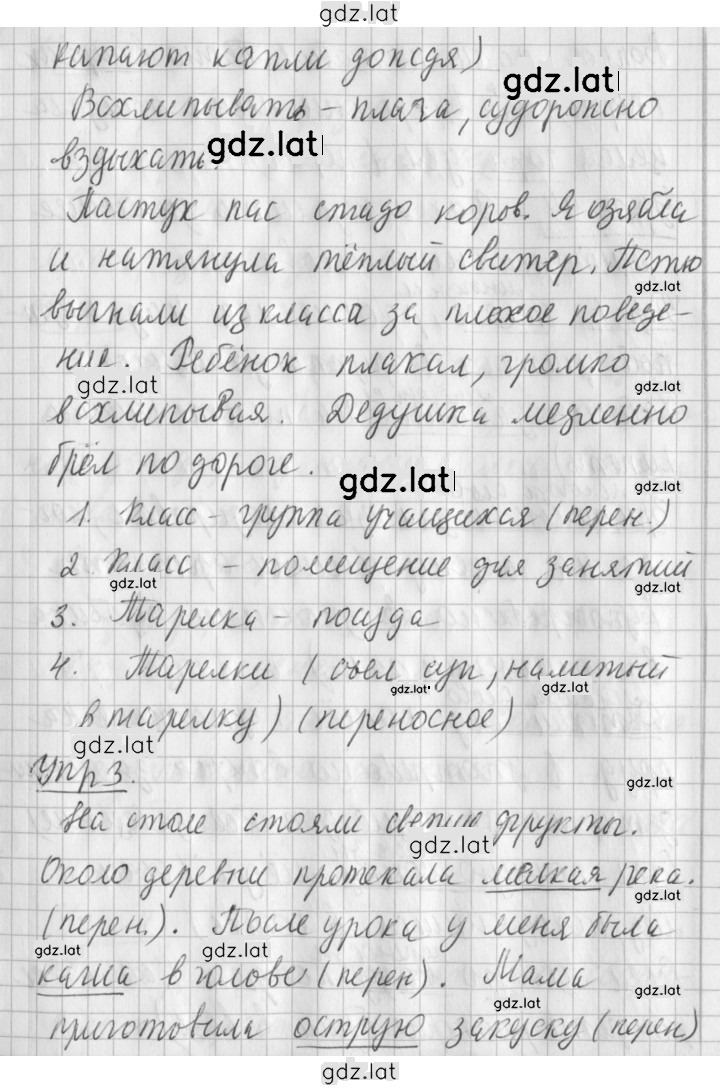 gdz.lat
капают капли дождя)
gdz.lat
Всхлипывать – плача, судорожно
gdz.lat
вздыхать.
Пастух пас стадо коров. Я озябла
и натянула тёплый свитер. Петю
gdz.lat
выгнали из класса за плохое поведе-
ние. Ребёнок плакал, громко
gdz.lat
gdz.lat
всхлипывая. Дедушка медленно
брёл по дороге.
gdz.lat
gdz.lat
1. Класс – группа учащихся (перен.)
2. Класс – помещение для занятий
gdz.lat
gdz.lat
3. Тарелка – посуда
4. Тарелки (съел суп, налитый
gdz.lat
gdz.lat
в тарелку) (переносное)
gdz.lat
Упр 3.
gdz.lat
На столе стояли фрукты.
gdz.lat
Около деревни протекала мелкая река.
gdz.lat
(перен.). После урока у меня была
gdz.lat
gdz.lat
каша в голове (перен). Мама
gdz.lat
gdz.lat
приготовила острую закуску (перен)
gdz.lat